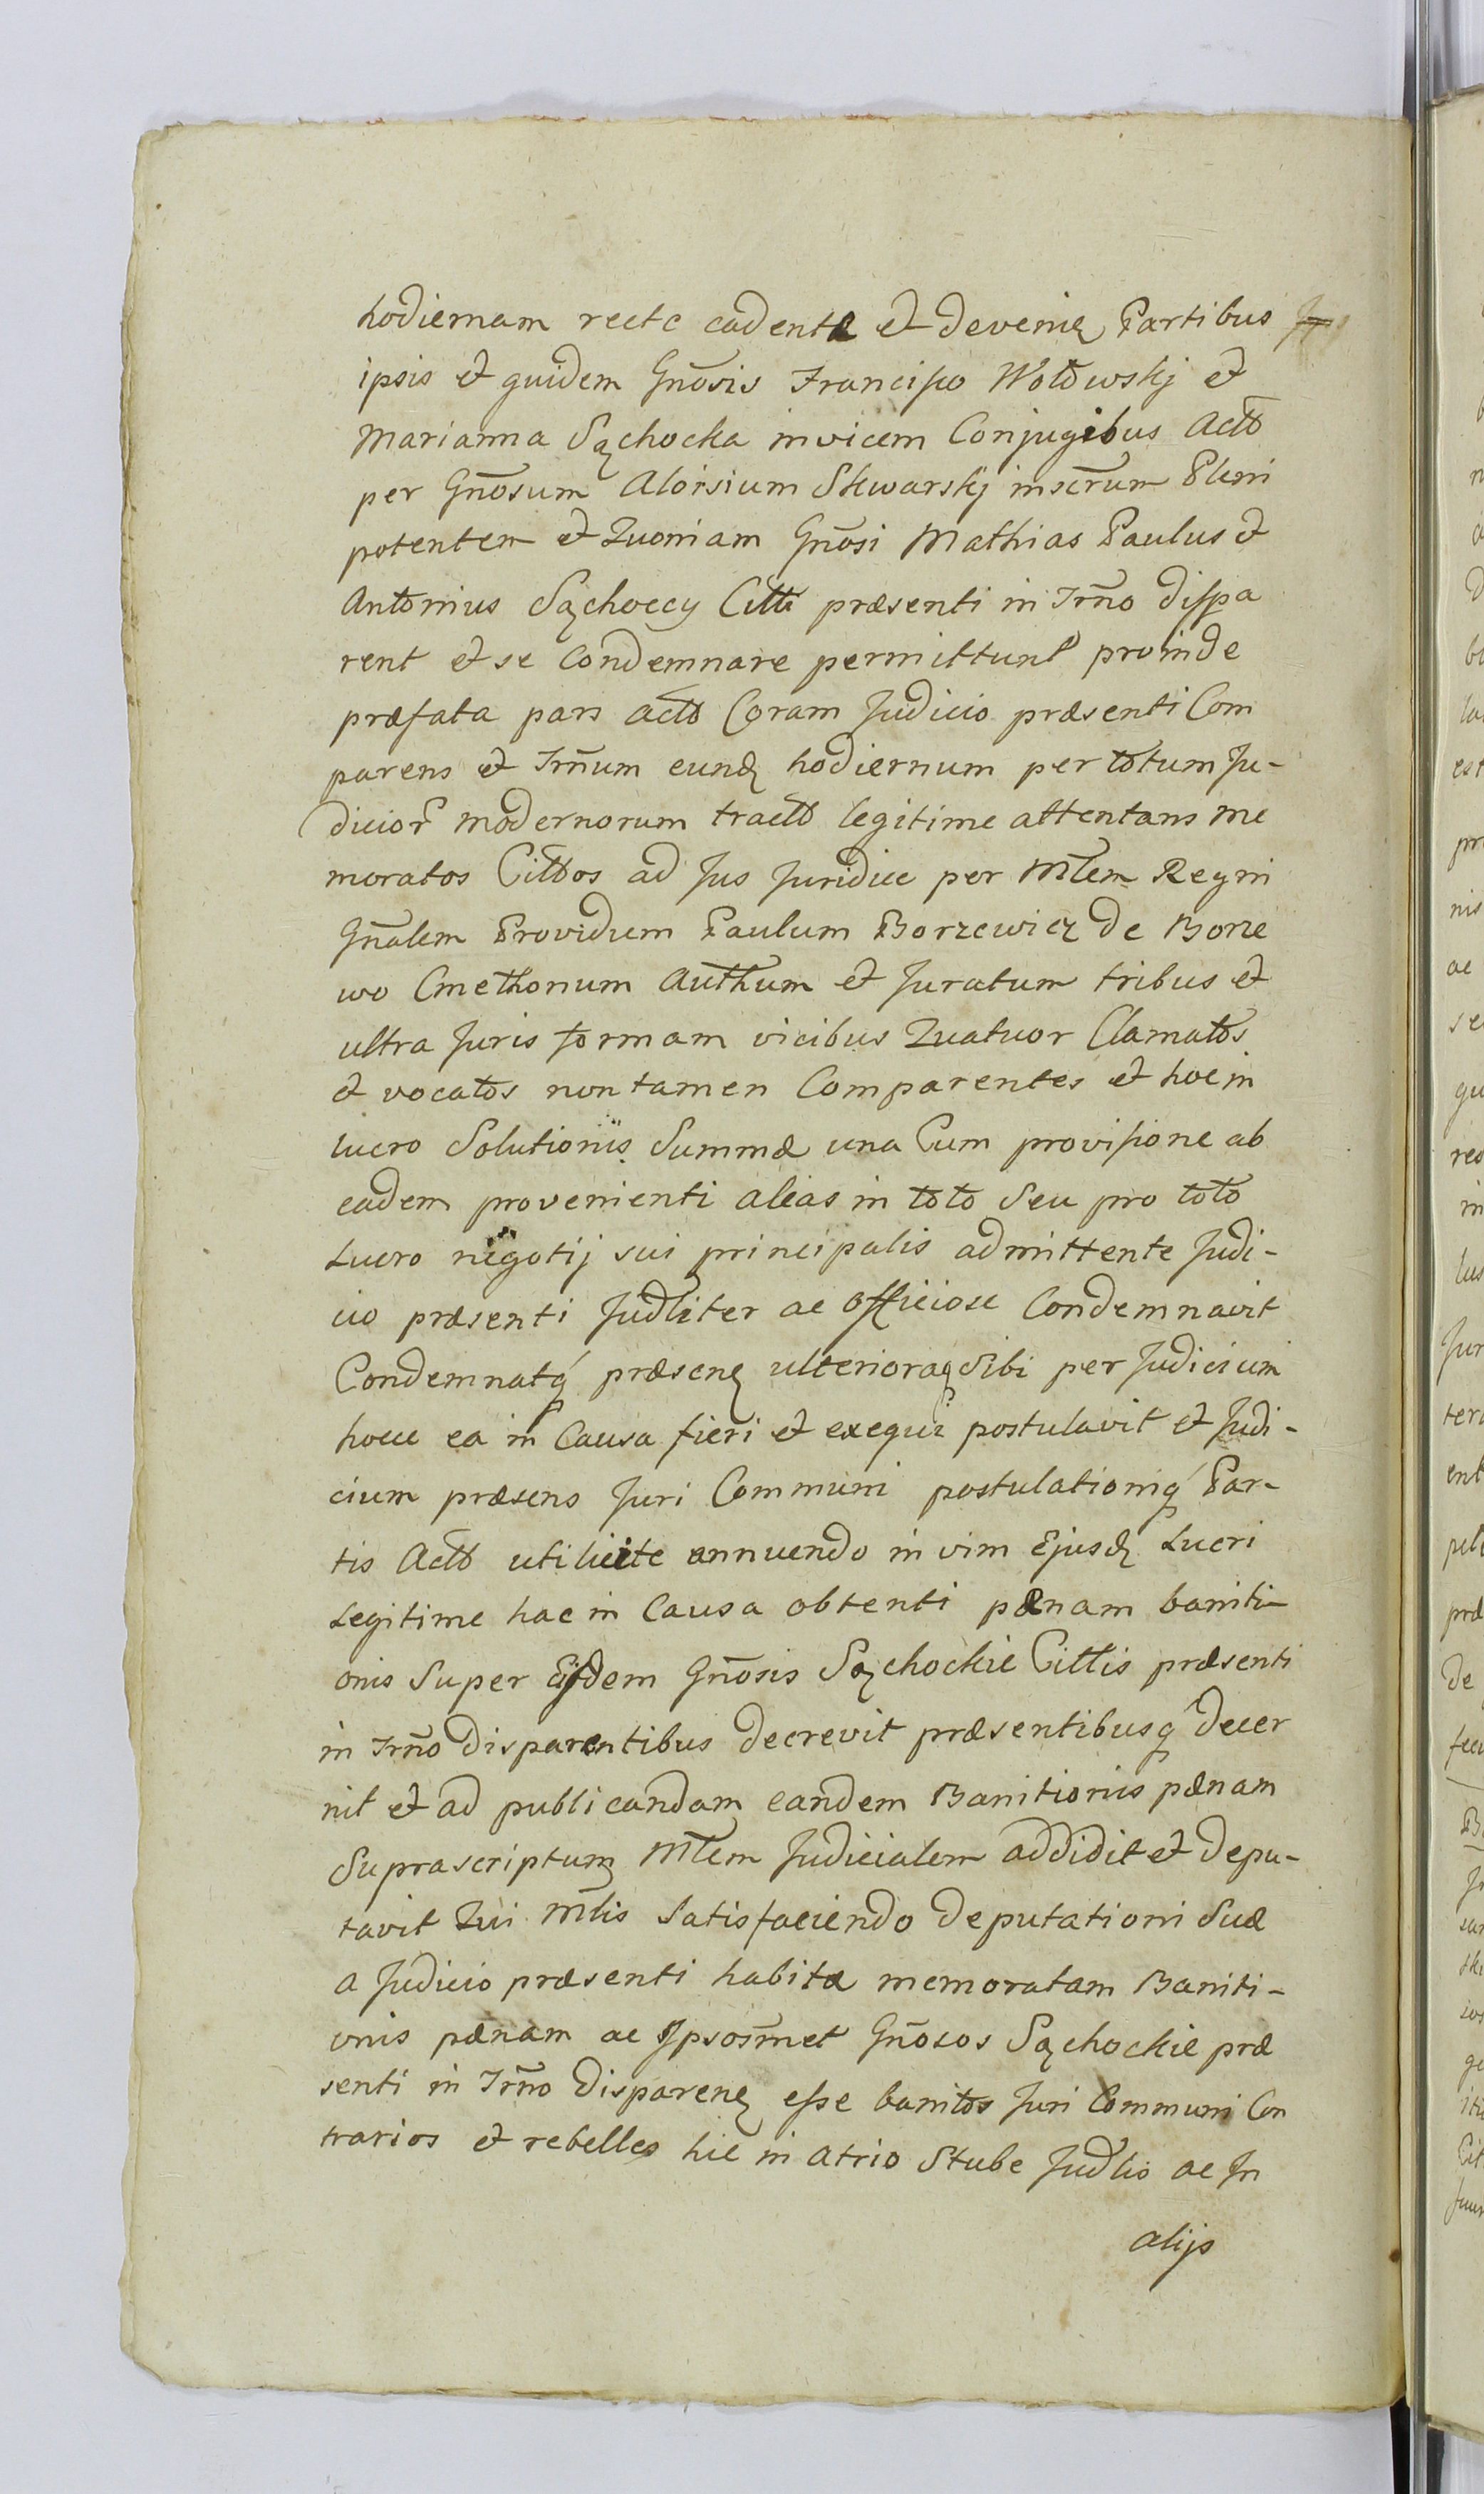 hodiernam recte cadente et deveniẽ Partibus
ipsis et quidem Gnõsis Francisco Wołowskj et
Marianna Sączhocka invicem Conjugibus Actõ
per Gnõsum Aloisium Skwarskj inscrũm Pleni
potentem et Quoniam Gnõsi Mathias Paulus et
Antonius Sączhoccy Citti præsenti in Trño dispa
rent et se Condemnare permittunt proinde
præfata pars Actõ Coram Judicio præsenti Com
parens et Trñum eundẽ hodiernum per totum Ju-
dicior̃ modernorum tractũ legitime attentans me
moratos Cittos ad Jus Juridice per Mtẽm Regni
Gñalem Providum Paulum Borzewicz de Borze
wo Cmethonum Authũm et Juratum tribus et
ultra Juris formam vicibus Quatuor Clamatos
et vocatos non tamen Comparentes et hoc in
lucro Solutionis Summæ una Cum provisione ab
eadem provenienti alias in toto Seu pro toto
Lucro negotij sui principalis admittente Judi-
cio præsenti Judliter ac officiose Condemnavit
Condemnatq́ præsenẽ ulterioraq Sibi per Judicium
hocce ea in Causa fieri et exequi postulavit et Judi-
cium præsens Juri Communi postulationiq́ Par-
tis Actõ utilicite annuendo in vim Ejusdẽ Lucri
Legitime hac in Causa obtenti pænam baniti-
onis Super Eisdem Gnõsis Sączhockie Cittis præsenti
in Trño disparentibus decrevit præsentibusq́ decer
nit et ad publicandam eandem Banitionis pænam
Suprascriptum Mtẽm Judicialem addidit et depu-
tavit Qui Mtĩs Satisfaciendo deputationi Suæ
a Judicio præsenti habitæ memoratam Baniti-
onis pænam ac Ipsosm̃et Gnõsos Sączhockie præ
senti in Trño disparenẽ esse banitos Juri Communi Con
trarios et rebelles hic in atrio Stube Judlis ac In
alijs